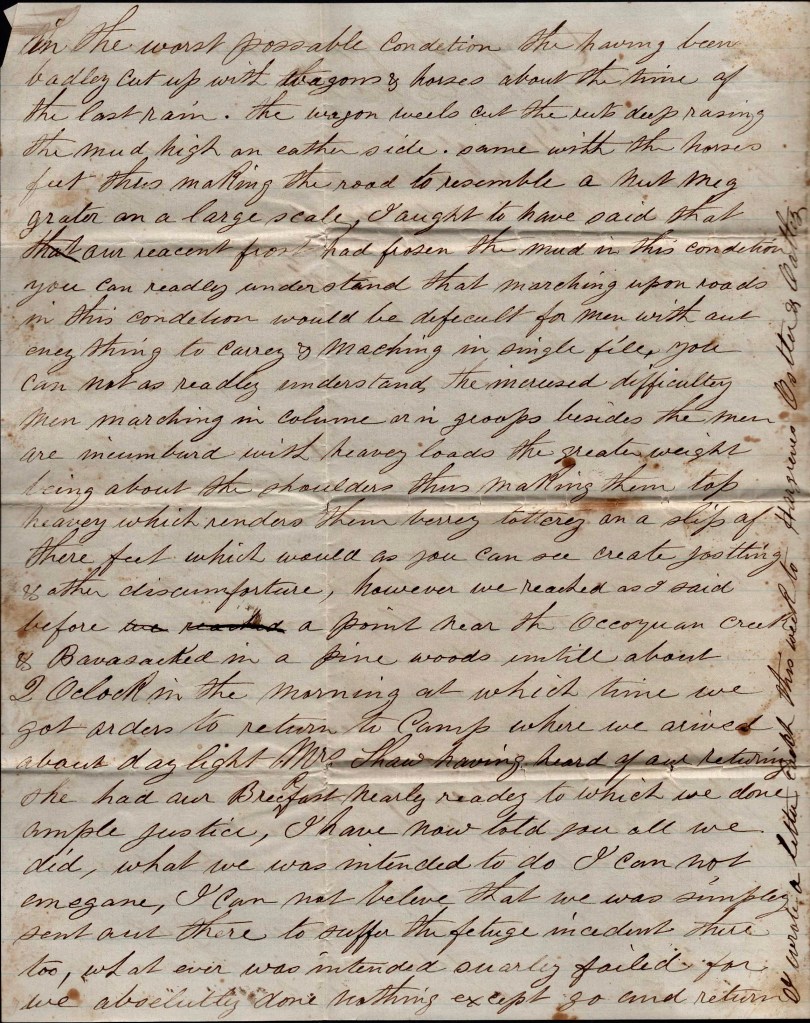 in the worst possable condition the having been
badley cut up with wagons & horses about the time of
the last rain. the wagon weels cut the ruts deep rasing
the mud high on eather side. same with the horses
feet thus making the road to resemble a nut meg
grater on a large scale, I aught to have said that
that our reacent frost had frosen the mud in this condition
you can readley understand that marching upon roads
in this condetion would be deficult for men with out
eney thing to carrey & maching in single file, you
can not as readley understand, the incresed difficultey
men marching in colume or in groops besides the men
are incumburd with heavey loads the greater weight
being about the shoulders thus making them top
heavey which renders them verrey totterey on a slip of
there feet which would as you can see create jostting
& other discumforture, however we reached as I said
before we reached a point near the Occoquan Creek
& Bavasacked in a pine woods untill about
2 Oclock in the morning at which time we
got orders to return to Camp where we arived
about day light Mrs Shaw having heard of our returning
she had our Brecfast nearly readey to which we done
ample justice, I have now told you all we
did, what we was intended to do I can not
emegane, I can not beleve that we was simpley
sent out there to suffer the fetuge incedent there
too, what ever was intended suarley failed for
we absolutley done nothing except go and return
I wrote a letter this week to Hargraves